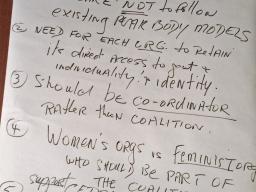 NOT to follow
existing PEAK BODY MODELS
② NEED FOR EACH ORG. to RETAIN
its direct access to govt &
individuality & identity.
③ Should be CO-ORDINATOR
RATHER THAN COALITION.
④ WOMEN'S ORGS is FEMINIST ORG
WHO SHOULD BE PART OF
support THE COALIT